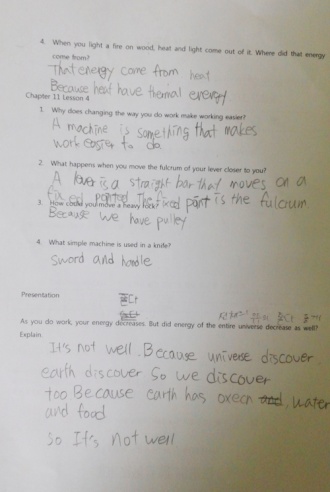 4. When you light a fire on wood, heat and light come out of it. Where did that energy
come from?
That energy come from heat
Because heat have thermal energy.
Chapter 11 Lesson 4
1. Why does changing the way you do work make working easier?
A machine is something that makes
work easier to do.
2. What happens when you move the fulcrum of your lever closer to you?
A lever is a straight bar that moves on a
fixed pointed This fixed point is the fulcrum
3. How could you move a heavy rock?
Because we have pulley
4. What simple machine is used in a knife?
Sword and handle
Presentation
As you do work, your energy decreases. But did energy of the entire universe decrease as well?
Explain.
It's not well. Because universe discover
earth discover So we discover
too Because earth has oxecn and, water
and food
So It's not well